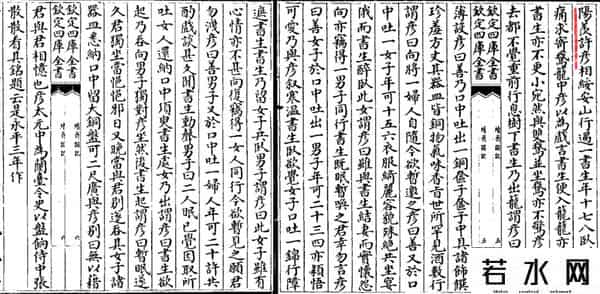 陽羨許彦相綏安山行遇一書生年十七八卧
痛求寄鵞籠中彦以為戲言書生便入籠籠亦
書生亦不更小宛然與雙鵞並坐鵞亦不驚彦
去都不覺重前行息樹下書生乃出籠謂彦曰
欽定四庫全書
續齊諧記
五
薄設彦曰善乃口中吐出一銅奩子奩子中具諸餚饌
珍羞方丈其器皿皆銅物氣味香旨世所罕見酒數行
謂彦曰向將一婦人自隨今欲暫邀之彦曰善又於口
中吐一女子年可十五六衣服綺麗容貌殊絶共坐宴
俄而書生醉卧此女謂彦曰雖與書生結妻而實懷怨
向亦竊得一男子同行書生既眠暫喚之君幸勿言彦
曰善女子於口中吐出一男子年可二十三四亦穎悟
可愛乃與彦叙寒溫書生卧欲覺女子口吐一錦行障
遮書生書生乃留女子共卧男子謂彦曰此女子雖有
心情亦不甚向復竊得一女人同行今欲暫見之願君
勿洩彦曰善男子又於口中吐一婦人年可二十許共
酌戲談甚久聞書生動聲男子曰二人眠已覺因取所
吐女人還納口中須臾書生處女乃出謂彦曰書生欲
起乃吞向男子獨對彦坐然後書生起謂彦曰暫眠遂
久君獨坐當悒悒邪日又晚當與君别遂吞其女子諸
器皿悉納口中留大銅盤可二尺廣與彦别曰無以藉
欽定四庫全書
續齊諧記
六
君與君相憶也彦太元中為蘭臺令史以盤餉侍中張
散散看其銘題云是永平三年作
若水网